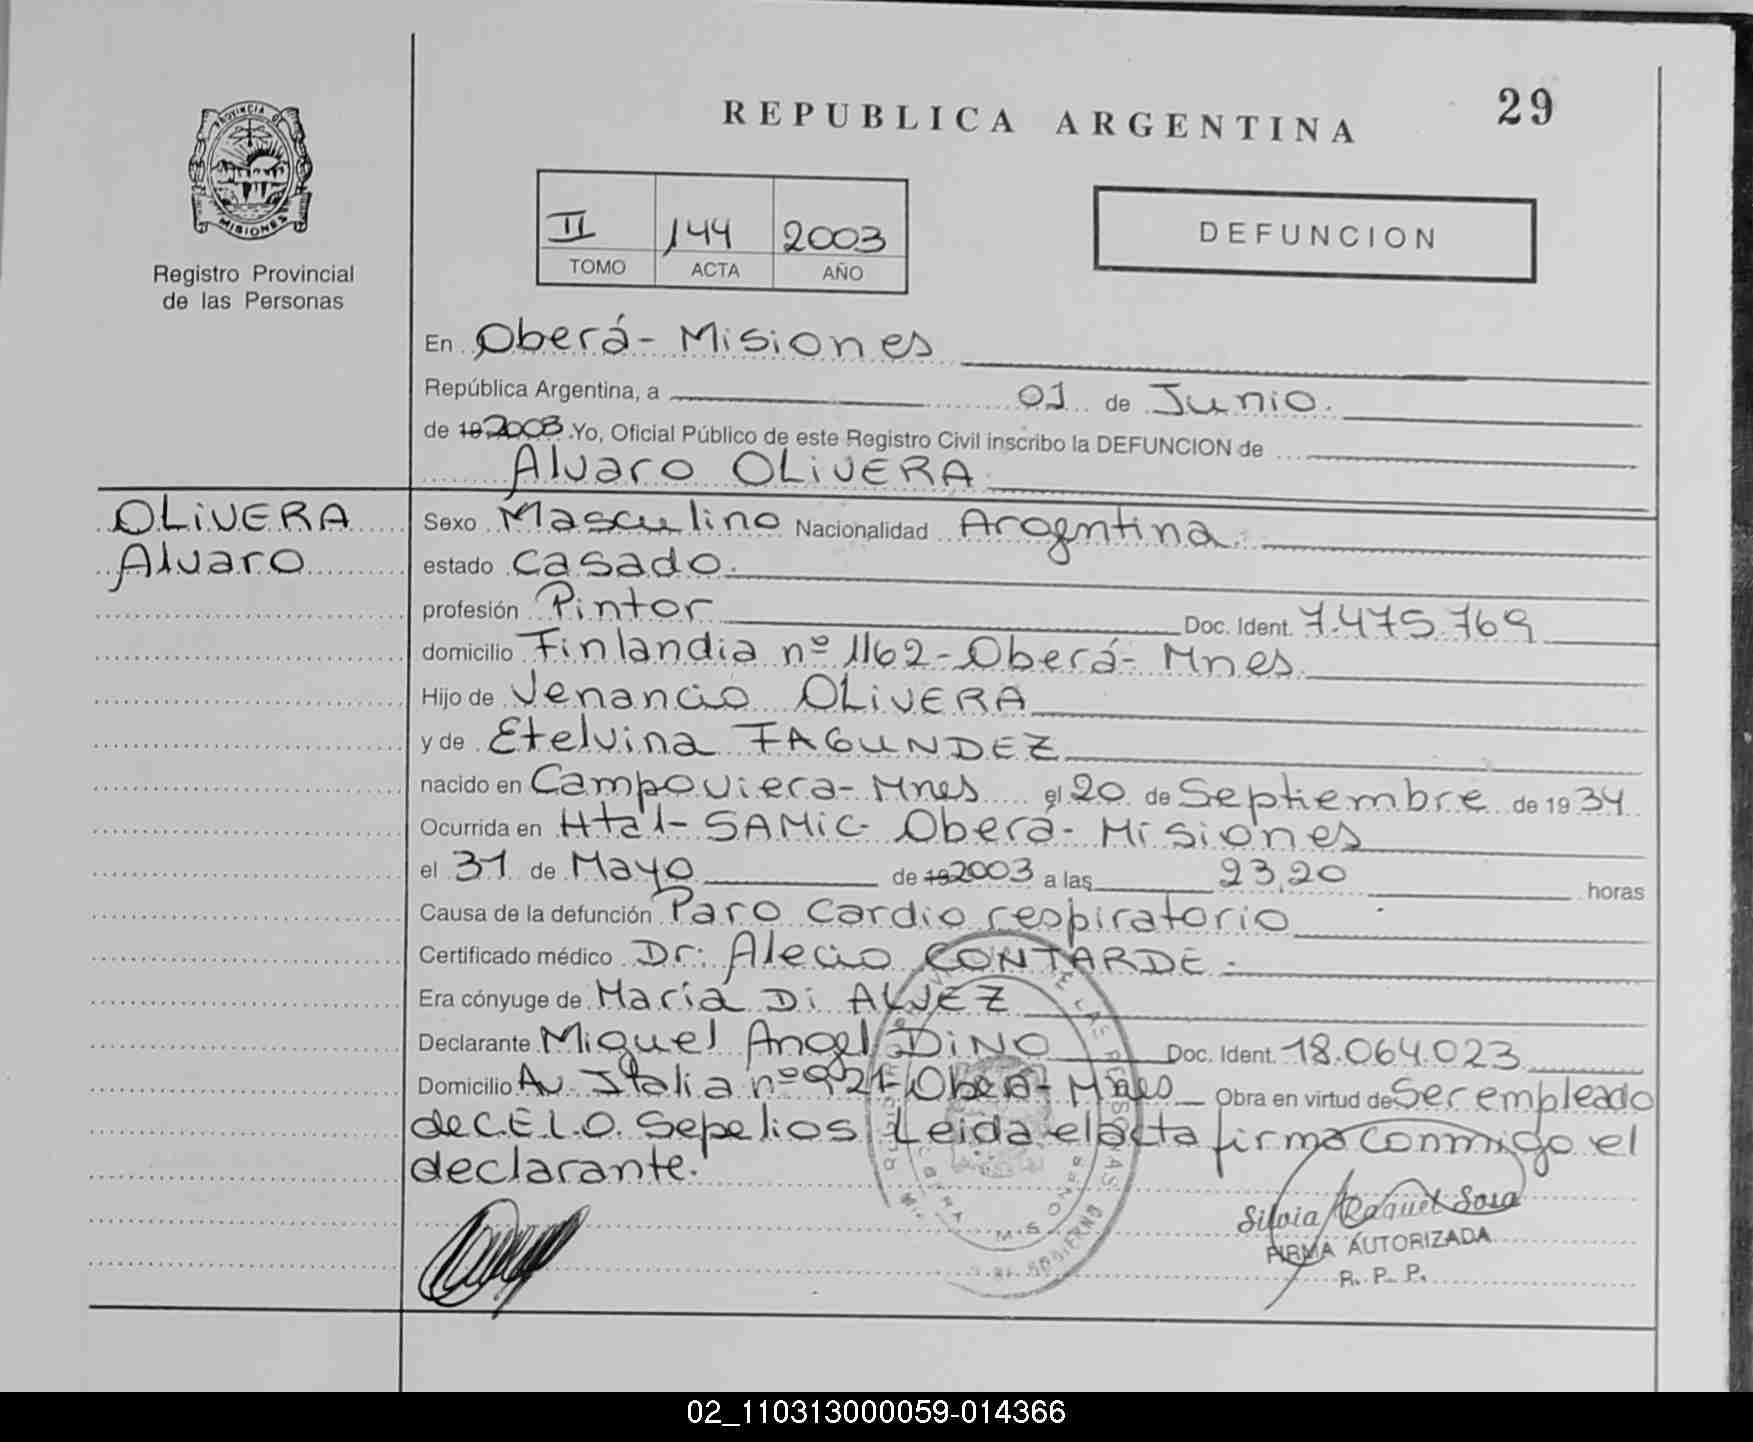 REPUBLICA ARGENTINA
29
PROVINCIA DE
MISIONES
Registro Provincial
de las Personas
II 144 2003
TOMO ACTA AÑO
DEFUNCION
En Oberá - Misiones
República Argentina, a 01 de Junio.
de 19 2003 Yo, Oficial Público de este Registro Civil inscribo la DEFUNCION de
Alvaro OLIVERA
OLIVERA
Alvaro
Sexo Masculino Nacionalidad Argentina.
estado Casado.
profesión Pintor Doc. Ident. 7.475.769
domicilio Finlandia nº 1162 - Oberá - Mnes.
Hijo de Venancio OLIVERA
y de Etelvina FAGUNDEZ
nacido en Campo Viera - Mnes el 20 de Septiembre de 19 34
Ocurrida en Htal - SAMIC - Oberá - Misiones
el 31 de Mayo de 19 2003 a las 23,20 horas
Causa de la defunción Paro Cardio respiratorio
Certificado médico Dr: Alecio CONTARDE -
Era cónyuge de María Di ALVEZ
Declarante Miguel Angel DINO Doc. Ident. 18.064.023
Domicilio Av. Italia nº 921 - Oberá - Mnes Obra en virtud de Ser empleado
de C.E.L.O. Sepelios Leida el acta firma conmigo el
declarante.
Silvia Raquel Sosa
FIRMA AUTORIZADA
R. P. P.
02_110313000059-014366